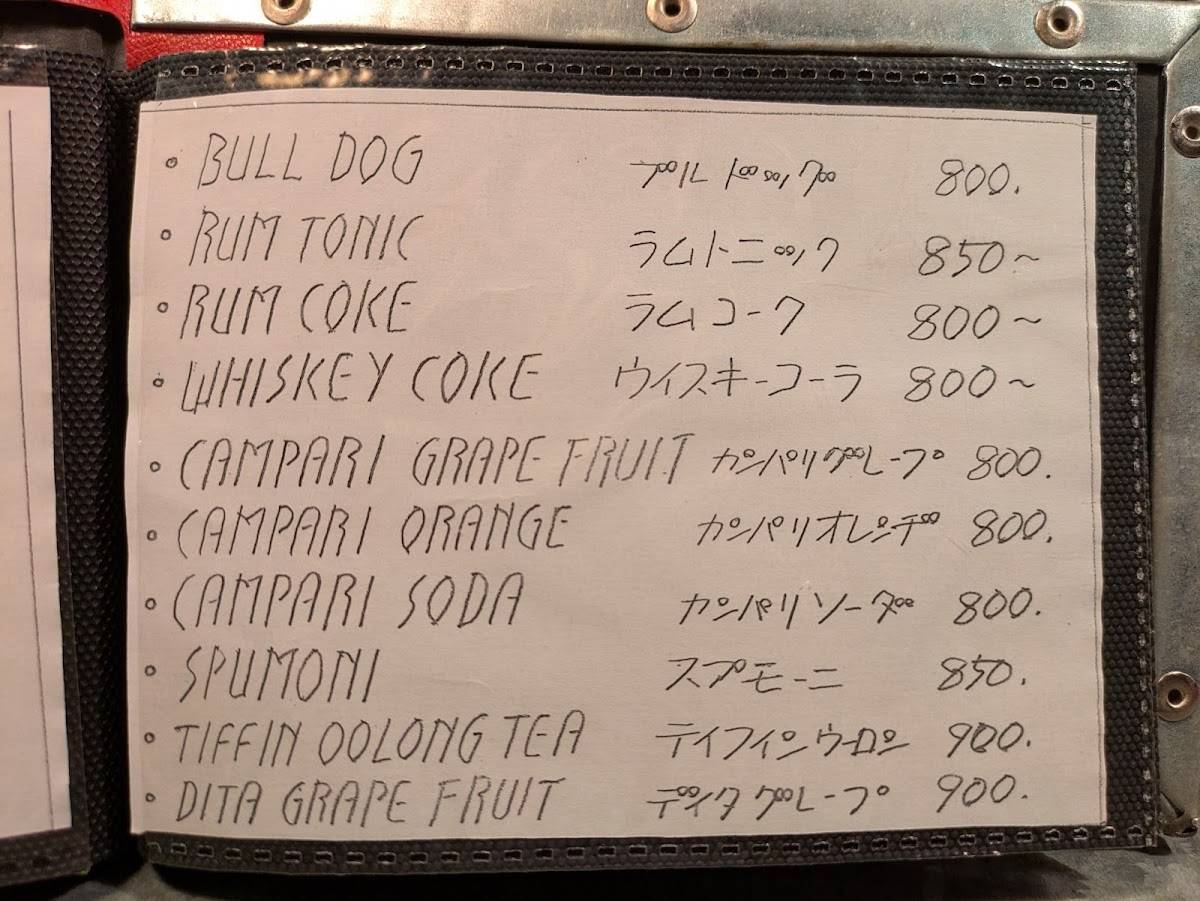 • BULL DOG ブルドッグ 800.
• RUM TONIC ラムトニック 850～
• RUM COKE ラムコーク 800～
• WHISKEY COKE ウイスキーコーラ 800～
• CAMPARI GRAPE FRUIT カンパリグレープ 800.
• CAMPARI ORANGE カンパリオレンヂ 800.
• CAMPARI SODA カンパリソーダ 800.
• SPUMONI スプモーニ 850.
• TIFFIN OOLONG TEA ティフィンウーロン 900.
• DITA GRAPE FRUIT ディタグレープ 900.